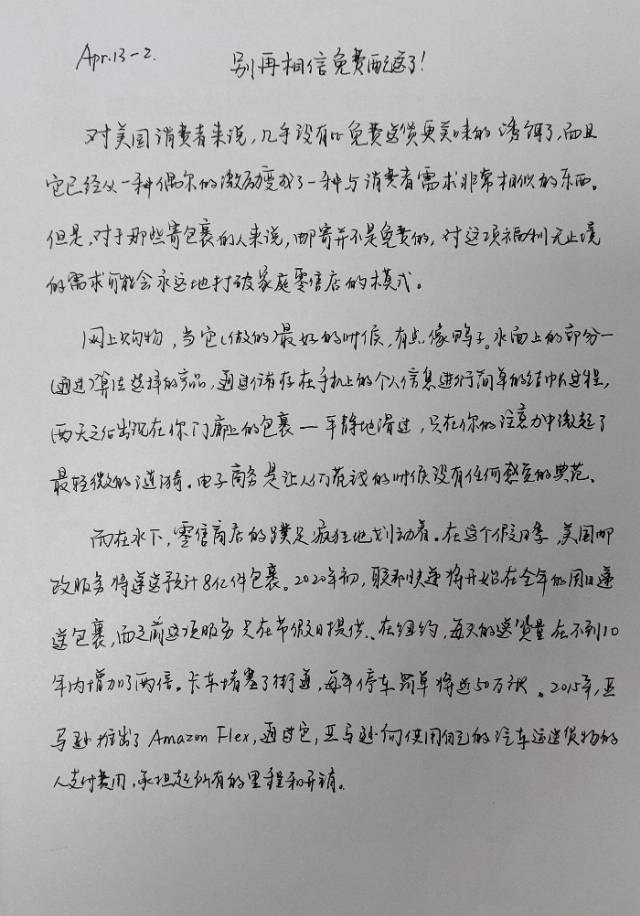 Apr.13-2.
别再相信免费配送了!
对美国消费者来说,几乎没有比免费送货更美味的诱饵了,而且
它已经从一种偶尔的激励变成了一种与消费者需求非常相似的东西。
但是,对于那些寄包裹的人来说,邮寄并不是免费的,对这项福利无止境
的需求可能会永远地打破家庭零售店的模式。
网上购物,当它(做的)最好的时候,有点像鸭子。水面上的部分—
(通过)算法选择的产品,通过储存在手机上的个人信息进行简单的结帐过程,
两天之后出现在你门廊上的包裹—平静地滑过,只在你的注意力中激起了
最轻微的涟漪。电子商务是让人们花钱的时候没有任何感觉的典范。
而在水下,零售商店的蹼足疯狂地划动着。在这个假日季,美国邮
政服务将递送预计8亿件包裹。2020年初,联邦快递将开始在全年的周日递
送包裹,而之前这项服务只在节假日提供。在纽约,每天的送货量在不到10
年内增加了两倍。卡车堵塞了街道,每年停车罚单将近50万张。2015年,亚
马逊推出了Amazon Flex,通过它,亚马逊向使用自己的汽车运送货物的
人支付费用,承担起所有的里程和开销。